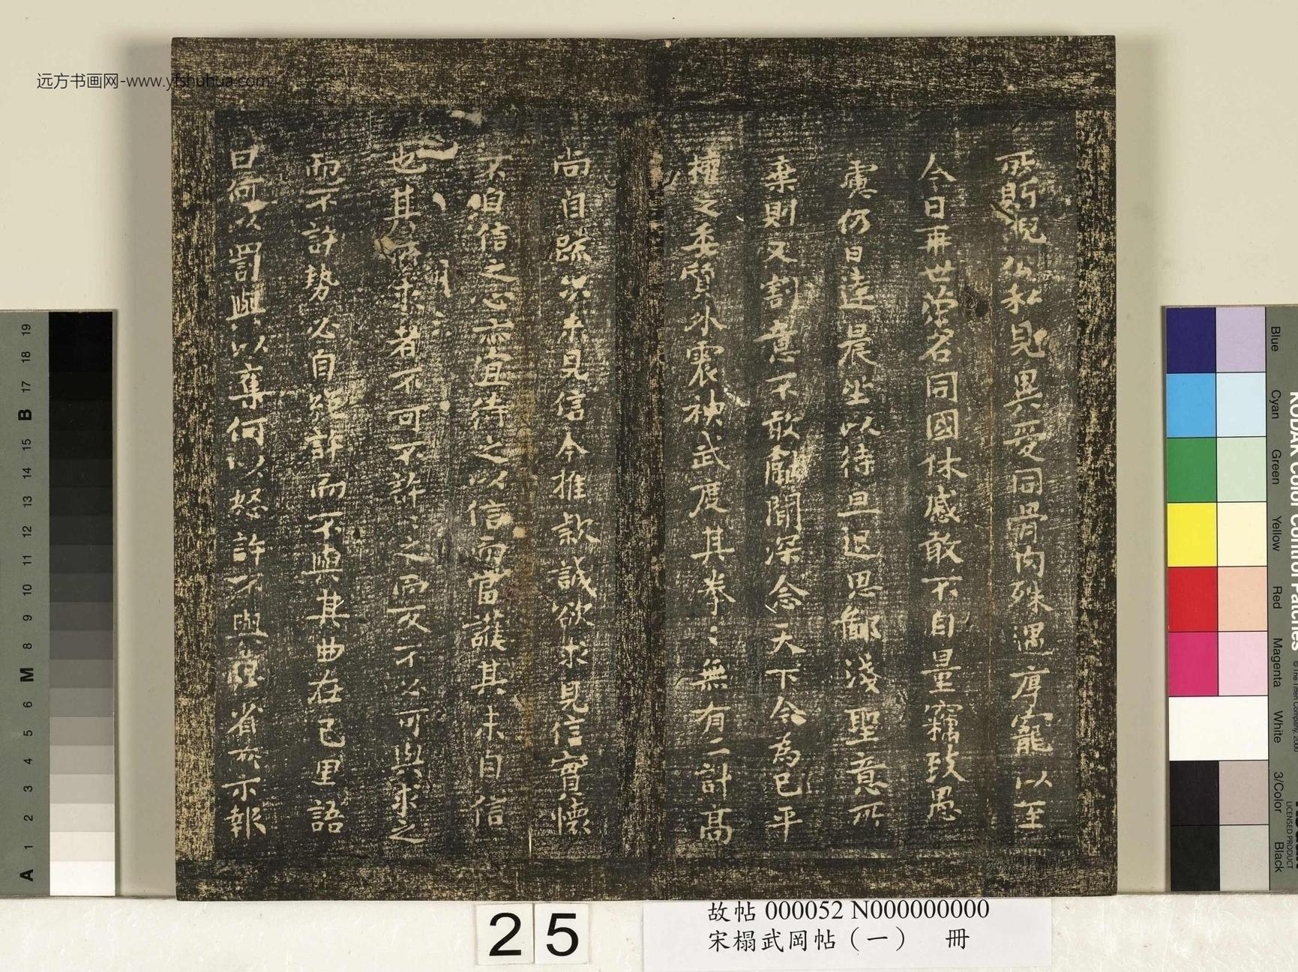 所盼睨公私見異愛同骨肉殊遇厚寵以至
今日再世榮名同國休慼敢不自量竊致愚
慮仍日達晨坐以待旦退思鄙淺聖意所
棄則又割意不敢獻聞深念天下今為已平
權之委質外震神武度其拳〻無有二計高
尚自疏況未見信今推款誠欲求見信實懷
不自信之心亦宜待之以信而當護其未自信
也其所求者不可不許〻之而反不必可與求之
而不許勢必自絕許而不與其曲在己里語
曰何以罰與以奪何以怒許不與省所示報
远方书画网-www.yfshuhua.com
25
故帖 000052 N000000000
宋榻武岡帖（一） 冊
19
18
17
B
15
14
13
12
11
10
9
8
M
6
5
4
3
2
1
A
Blue
Cyan
Green
Yellow
Red
Magenta
White
3/Color
Black
KODAK Color Control Patches
LICENSED PRODUCT